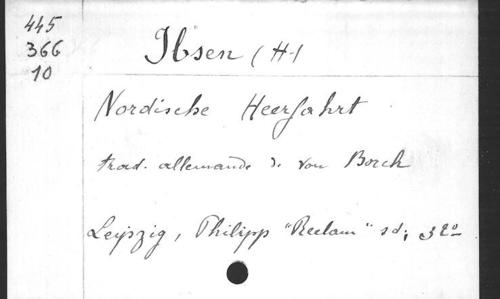 445
366
10
Ibsen (H.)
Nordische Heerfahrt
trad. allemande de von Borch
Leipzig, Philipp "Reclam" sd; 32o